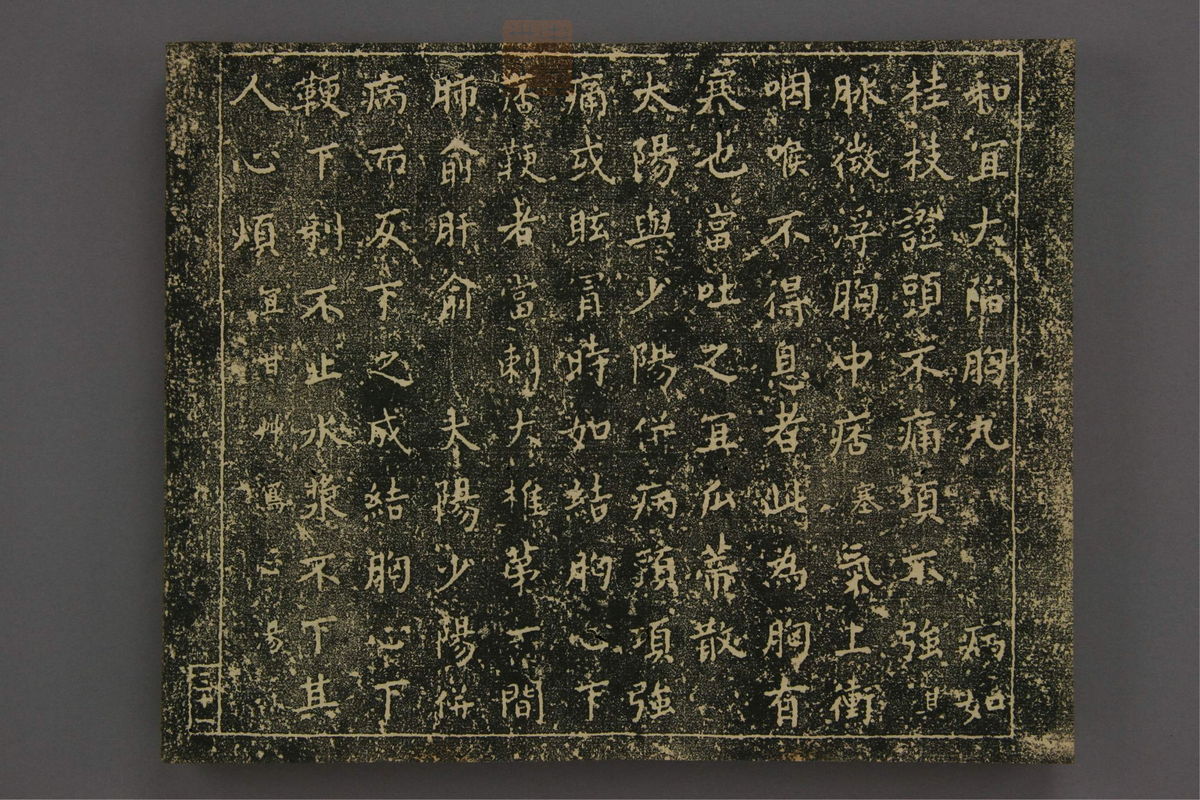 和宜大陷胸丸　病如
桂枝證頭不痛項不強
脉微浮胸中痞塞氣上衝
咽喉不得息者此為胸有
寒也當吐之宜瓜蒂散
太陽與少陽併病頭項強
痛或眩冒時如結胸心下
痞鞕者當刺大椎第一間
肺俞肝俞　太陽少陽併
病而反下之成結胸心下
鞕下利不止水漿不下其
人心煩宜甘艸